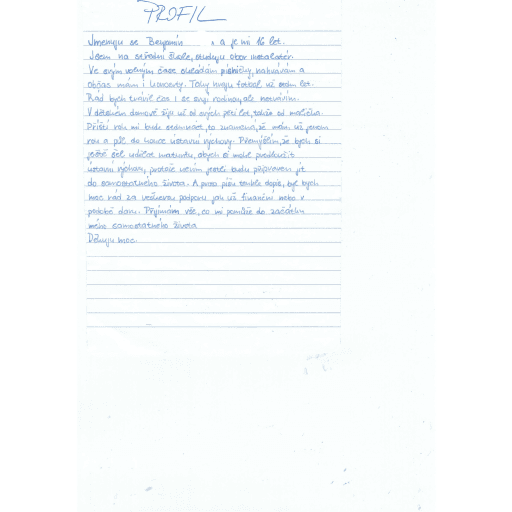 PROFIL
Jmenuju se Benjamín a je mi 16 let.
Jsem na střední škole, studuju obor instalatér.
Ve svým volným čase skládám písničky, nahrávám a
občas mám i koncerty. Taky hraju fotbal už osm let.
Rád bych trávil čas i se svojí rodinou, ale netrávím.
V dětském domově žiju už od svých pěti let, takže od malička.
Příští rok mi bude sedmnáct, to znamená, že mám už jenom
rok a půl do konce ústavní výchovy. Přemýšlím, že bych si
ještě šel udělat maturitu, abych si mohl prodloužit
ústavní výchovu, protože nevím jestli budu připravenej jít
do samostatného života. A proto píšu tenhle dopis, byl bych
moc rád za veškerou podporu jak už finanční nebo v
podobě darů. Přijímám vše, co mi pomůže do začátku
mého samostatného života.
Děkuju moc.